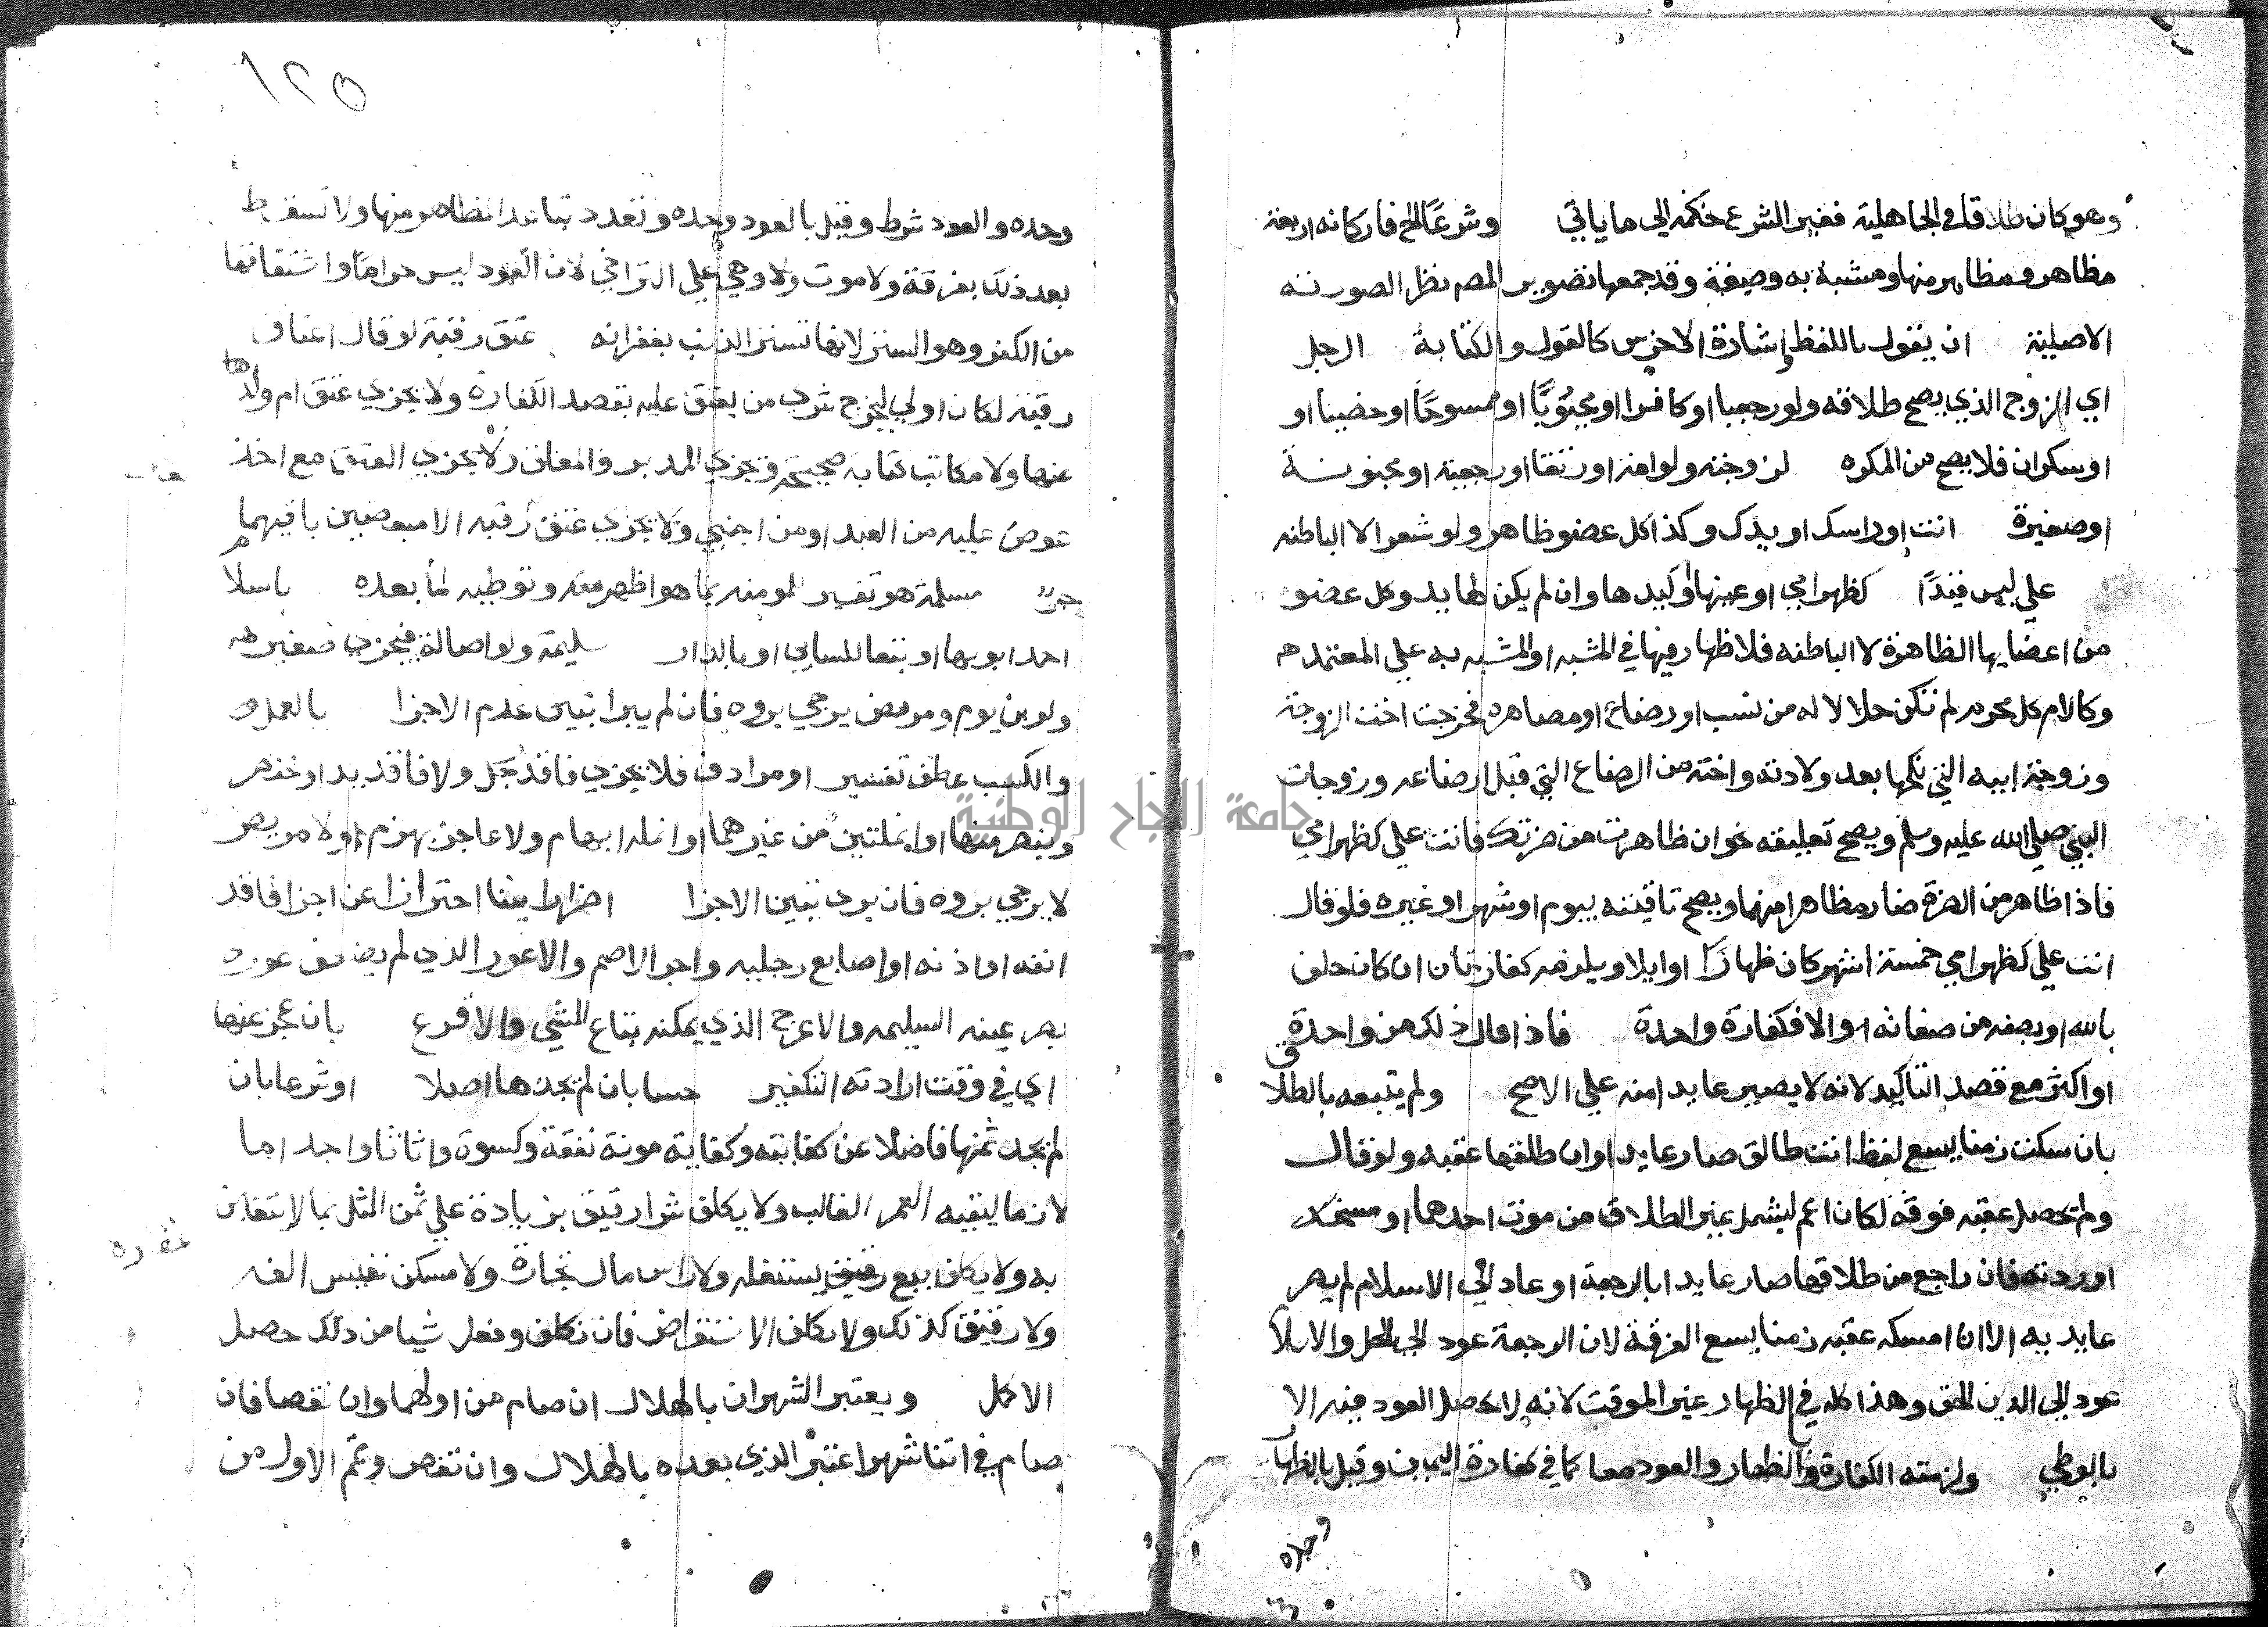 وهو كان طلاقا في الجاهلية فغير الشرع حكمه الى ما ياتي وشرعا الخ فاركانه اربعة
مظاهر ومظاهر منها ومشبه به وصيغة وقد جمعها تصوير المص نظرا لصورته
الاصلية ان يقول باللفظ واشارة الاخرس كالقول والكتابة الرجل
اي الزوج الذي يصح طلاقه ولو رجعيا او كافرا او مجبوبا او ممسوحا او خصيا او
او سكران فلا يصح من المكره لزوجته ولو امة او رتقا او رجعية او مجنونة
او صغيرة انت او راسك او يدك وكذا كل عضو ظاهر ولو شعر الا الباطنه
علي ليس قيدا كظهر امي او عينها او كيدها وان لم يكن لها يد وكل عضو
من اعضايها الظاهرة لا الباطنه فلا ظهار فيها في المشبه او المشبه به علي المعتمد
وكالام كل محرم لم تكن حلالا له من نسب او رضاع او مصاهره فخرجت اخت الزوجة
وزوجة ابيه التي نكحها بعد ولادته واخته من الرضاع التي قبل ارضاعه وزوجات
النبي صلى الله عليه وسلم ويصح تعليقه نحو ان ظاهرت من ضرتك فانت علي كظهر امي
فاذا ظاهر من الضرة صار مظاهرا منهما ويصح تاقيته بيوم او شهر او غيره فلو قال
انت علي كظهر امي خمسة اشهر كان ظهارا او ايلا ويلزمه كفارتان ان كان حلف
بالله او بصفه من صفاته والا فكفارة واحدة فاذا قال ذلك مرة واحدة
او اكثر مع قصد التاكيد لانه لا يصير عايدا منه علي الاصح ولم يتبعه بالطلاق
بان سكت زمنا يسع لفظ انت طالق صار عايدا وان طلقها عقبه ولو قال
ولم تحصل عقبه فرقة لكان اعم ليشمل غير الطلاق من موت احدهما او فسخ
او ردته فان راجع من طلاقها صار عايدا بالرجعة او عاد الي الاسلام لم يصر
عايد به الا ان امسكه عقبه زمنا يسع الفرقة لان الرجعة عود الي الحل والاسلام
عود الي الدين الحق وهذا كله في الظهار غير الموقت لانه لا يحصل العود فيه الا
بالوطي ولزمته الكفارة والظهار والعود معا كما في كفارة اليمين وقيل بالظهار
وحده
١٢٥
وحده والعود شرط وقيل بالعود وحده وتتعدد بتباعد المظاهر منها ولا تسقط
بعد ذلك بفرقة ولا موت ولا وهي علي التراخي لان العود ليس حراما واشتقاقها
من الكفر وهو الستر لانها تستر الذنب بغفرانه عتق رقبة لو قال اعتاق
رقبة لكان اولي ليخرج شري من يعتق عليه بقصد الكفارة ولا يجزي عتق ام ولدها
عنها ولا مكاتب كتابة صحيحة ويجزي المدبر والمعلق ولا يجزي العتق مع اخذ
عوض عليه من العبد او من اجنبي ولا يجزي عتق رقبه الا مبعضين باقيهما
حر مسلمة هو تفسير للمومنه بما هو اظهر منه وتوطيه لما بعده باسلام
احد ابويها او تبعا للسابي او بالدار سليمة ولو اصالة فيجزي صغيره
ولو بن يوم ومريض يرجي بروه فان لم يبرا تبين عدم الاجزا بالعمل
والكسب عطف تفسير او مرادف فلا يجزي فاقد رجل ولا فاقد يد او خنصر
وبنصر منها او انملتين من غيرهما او انملة ابهام ولا عاجز بهرم ولا مريض
لا يرجي بروه فان برء تبين الاجزا اضرارا بينا احترازا عن اجزا فاقد
انفه او اذنه او اصابع رجليه واجزا الاصم والاعور الذي لم يضعف عوره
بصر عينه السليمه والاعرج الذي يمكنه تتابع المشي والاقرع بان عجز عنها
اي في وقت ارادته التكفير حسا بان لم يجدها اصلا او شرعا بان
لم يجد ثمنها فاضلا عن كفايته وكفاية مونة نفقة وكسوة واثاثا واخداما
لازما لبقيه العمر الغالب ولا يكلف شرا رقيق بزيادة علي ثمن المثل بما لا يتغابن
به ولا يكلف بيع رقيق يستغله ولا راس مال تجارة ولا مسكن نفيس الفه
ولا رقيق كذلك ولا يكلف الاستقراض فان تكلف وفعل شيا من ذلك حصل
الاكل ويعتبر الشهران بالهلال ان صام من اولهما وان نقصا فان
صام في اثنا شهر اعتبر الذي بعده بالهلال وان نقص وتمم الاول من
جامعة النجاح الوطنية